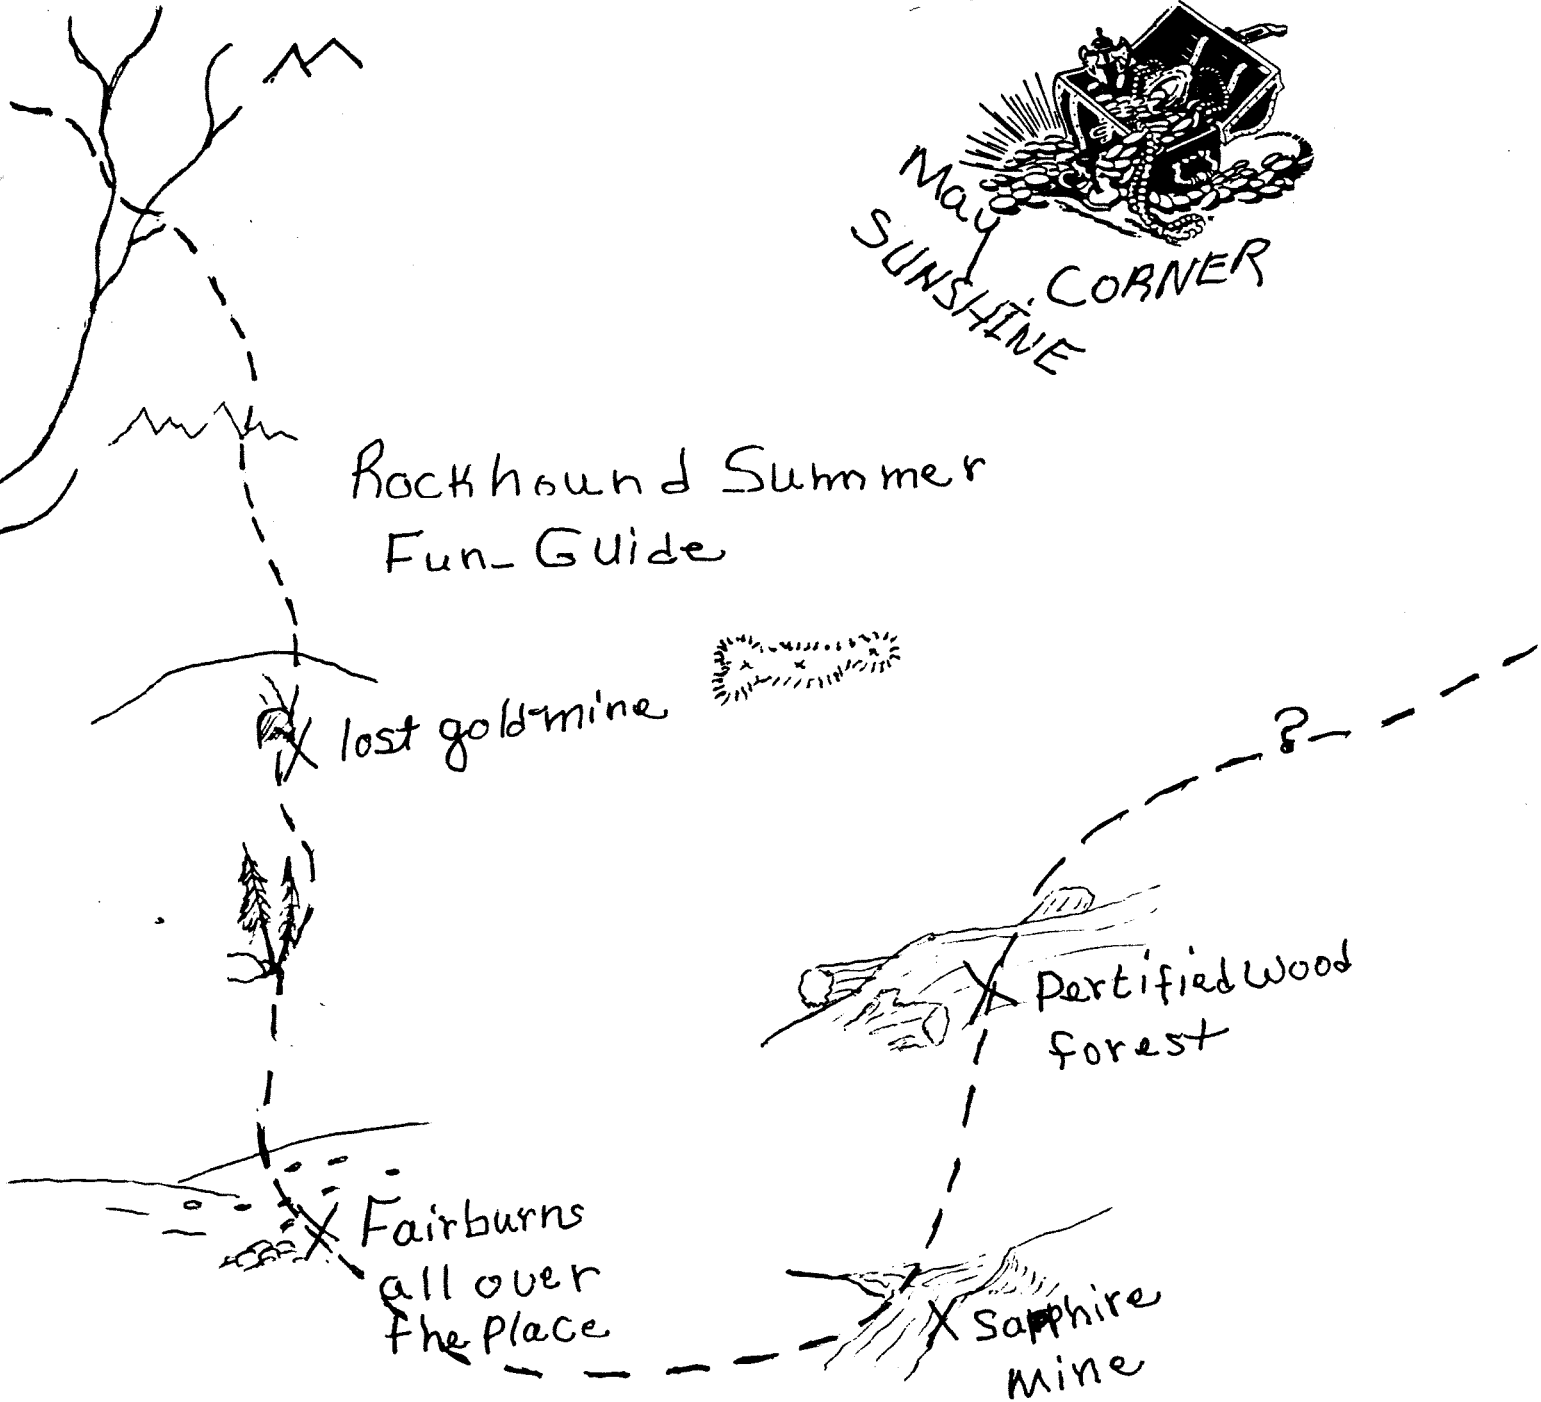 May
SUNSHINE
CORNER
Rockhound Summer
Fun-Guide
lost goldmine
?
Pertified wood
forest
Fairburns
all over
the place
Sapphire
mine